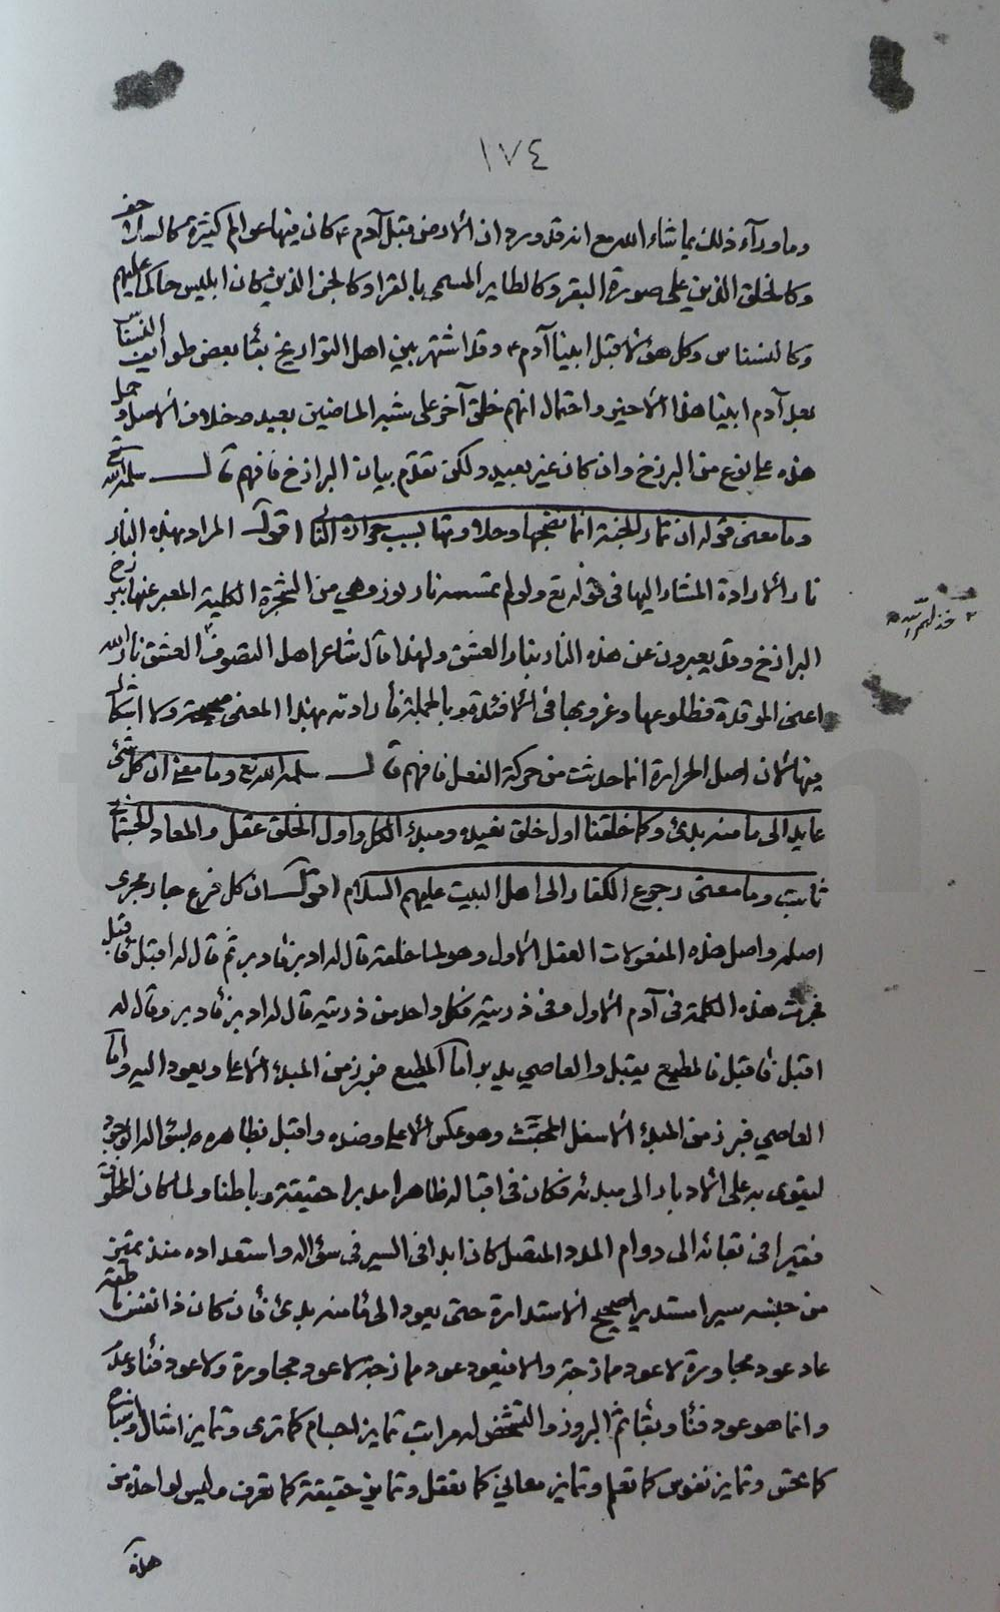 ١٧٤
وما ورآء ذلك بما شاء الله مع انه قد ورد ان الارض قبل آدم ع كان فيها عوالم كثيرة كالسلاحف
وكالخلق الذين على صورة البقر وكالطاير المسمى بالقرا وكالجن الذين كان ابليس حاكما عليهم
وكالنسناس وكل هؤلاء قبل ابينا آدم ع وقد اشتهر بين اهل التواريخ بقاء بعض طوايف النسناس
بعد آدم ابينا هذا الاخير واحتمال انهم خلق آخر على شبه الماضين بعيد وخلاف الاصل وحمل
هذه على نوع من البرزخ وان كان غير بعيد ولكن تقدّم بيان البرازخ فافهم قال سلمه الله
وما معنى قوله ان ثمار الجنة انما نضجها وحلاوتها بسبب حرارة النار اقول المراد بهذه النار
نار الارادة المشار اليها في قوله تع ولو لم تمسسه نار نور وهي من الشجرة الكلية المعبر عنها ببرزخ
البرازخ وقد يعبرون عن هذه النار بنار العشق ولهذا قال شاعر اهل التصوف العشق نار الله
اعنى الموقدة فطلوعها وغروبها فى الافئدة وبالجملة فارادته بهذا المعنى صحيحة ولا اشكال
٢ خذلهم الله
فيها لان اصل الحرارة انما حدثت من حركة الفعل فافهم قال سلمه الله تع وما معنى ان كل شئ
عايد الى ما منه بدئ وكما خلقنا اول خلق نعيده ومبدء الكل واول الخلق عقل والمعاد الجسمانى
ثابت وما معنى رجوع الكفار الى اهل البيت عليهم السلام اقول ان كل فرع جار مجرى
اصله واصل هذه المفعولات العقل الاول وهو لما خلقه قال له ادبر فادبر ثم قال له اقبل فاقبل
فجرت هذه الكلمة فى آدم الاول وفى ذريته فكل واحد من ذريته قال له ادبر فادبر وقال له
اقبل فاقبل فالمطيع يقبل والعاصي يدبر اما المطيع فبرز من المبدء الاعلى ويعود اليه واما
العاصي فبرز من المبدء الاسفل المجتث وهو عكس الاعلى وضده واقبل بظاهره بسؤاله الوجود
ليتقوى به على الادبار الى مبدئه فكان فى اقباله ظاهرا مدبرا حقيقة وباطنا ولما كان المخلوق
فقيرا فى بقائه الى دوام المدد المتصل كان ابدا فى السير فى سؤاله واستعداده منذ تميز
من جنسه سيرا مستديرا صحيح الاستدارة حتى يعود الى ما منه بدئ فان كان ذا نفس ناطقة
عاد عود مجاورة لا عود ممازجة والا فيعود عود ممازجة لا عود مجاورة ولا عود فناء وعدم
وانما هو عود فناء وبقاء ثم البروز والتشخص له مراتب تمايز اجسام كما ترى وتمايز امثال واشباح
كما تحس وتمايز نفوس كما تعلم وتمايز معاني كما تعقل وتمايز حقيقة كما تعرف وليس لواحد من
هذه